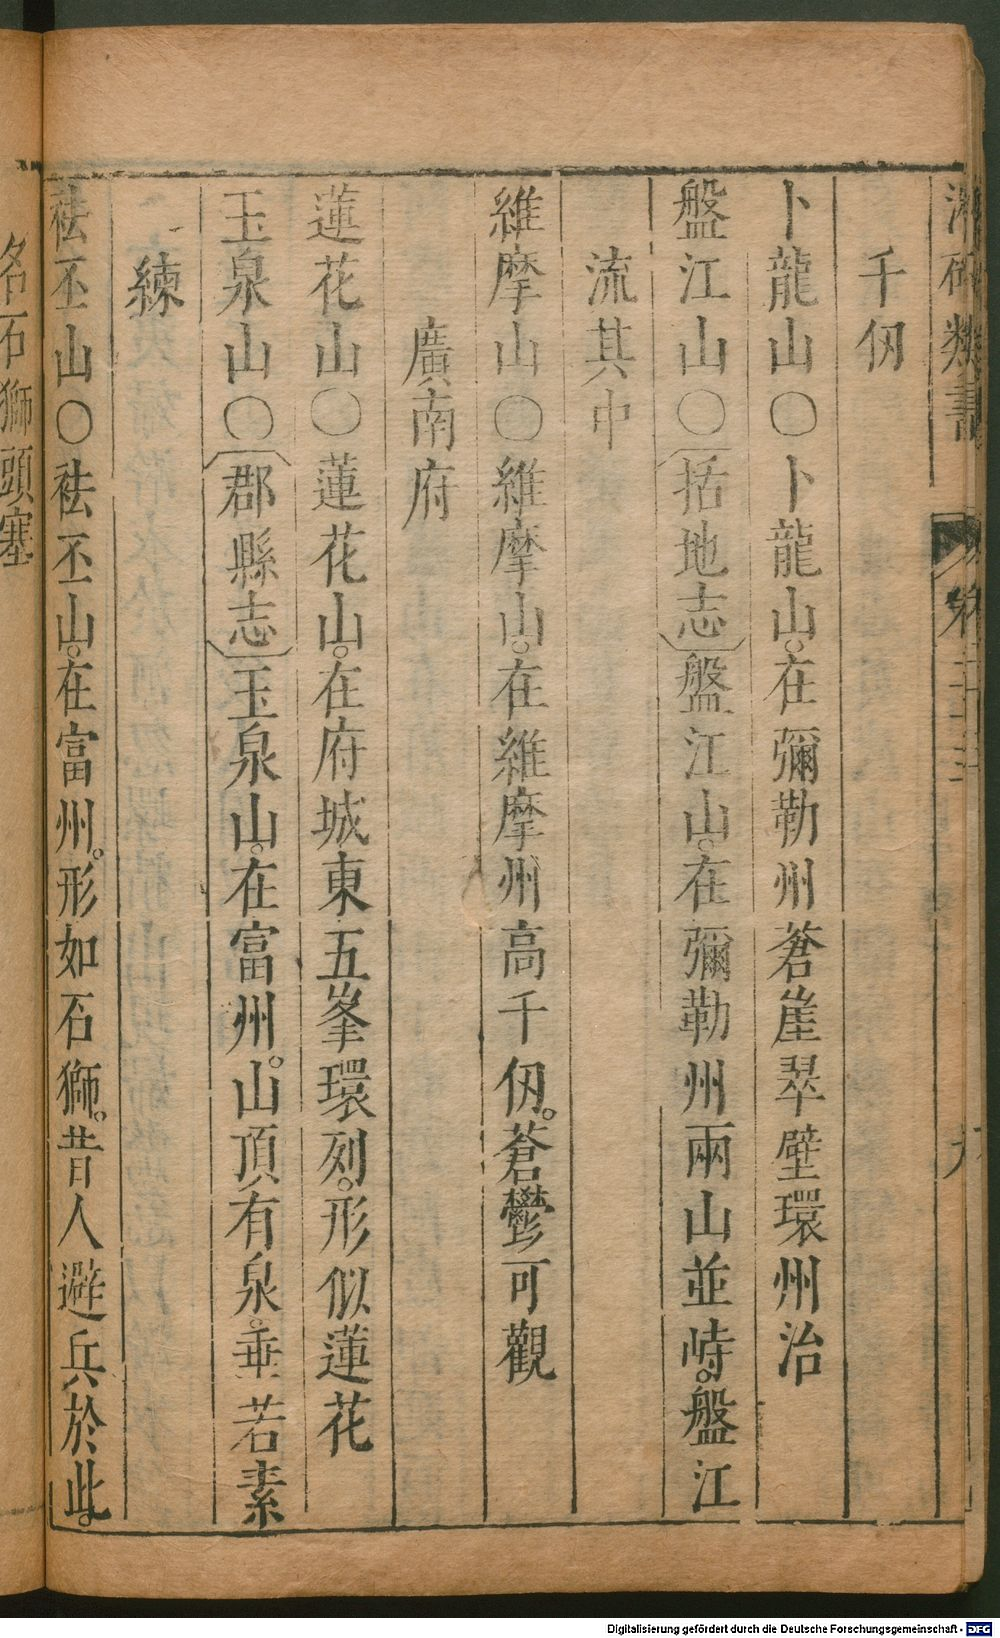 類書
千仞
卜龍山○卜龍山。在彌勒州蒼崖翠壁環州治
盤江山○括地志盤江山。在彌勒州兩山並峙。盤江
流其中
維摩山○維摩山。在維摩州高千仞。蒼鬱可觀
廣南府
蓮花山○蓮花山。在府城東五峯環列。形似蓮花
玉泉山○郡縣志玉泉山。在富州。山頂有泉。垂若素
練
祛丕山○祛丕山。在富州。形如石獅。昔人避兵於此。
名石獅頭塞
Digitalisierung gefördert durch die Deutsche Forschungsgemeinschaft - DFG